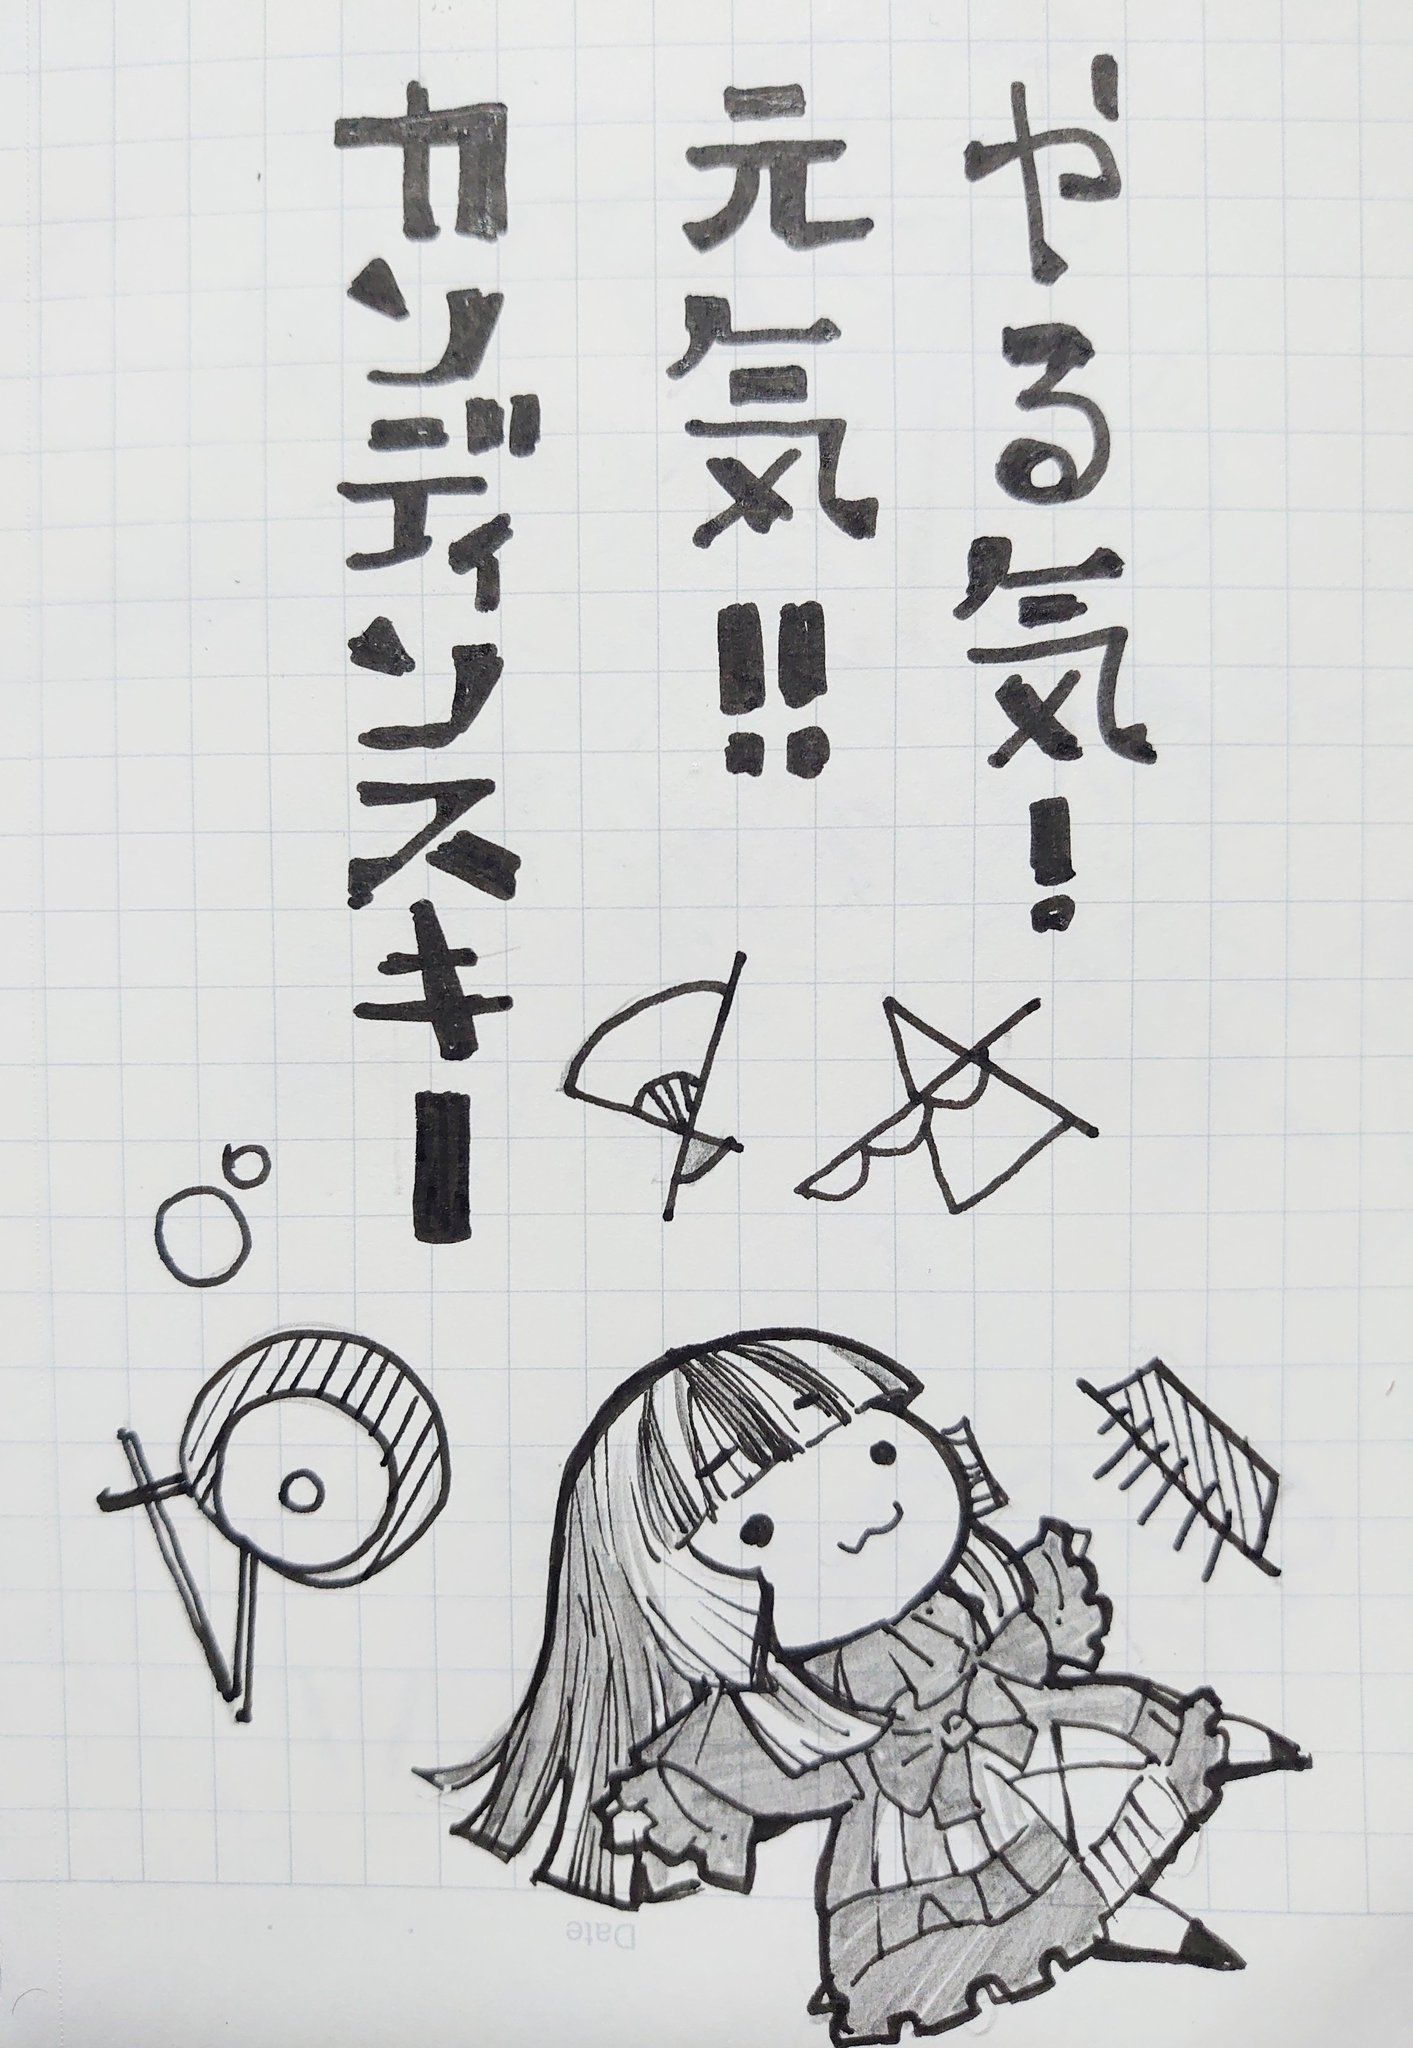 やる気！
元気！！
カンディンスキー
Date